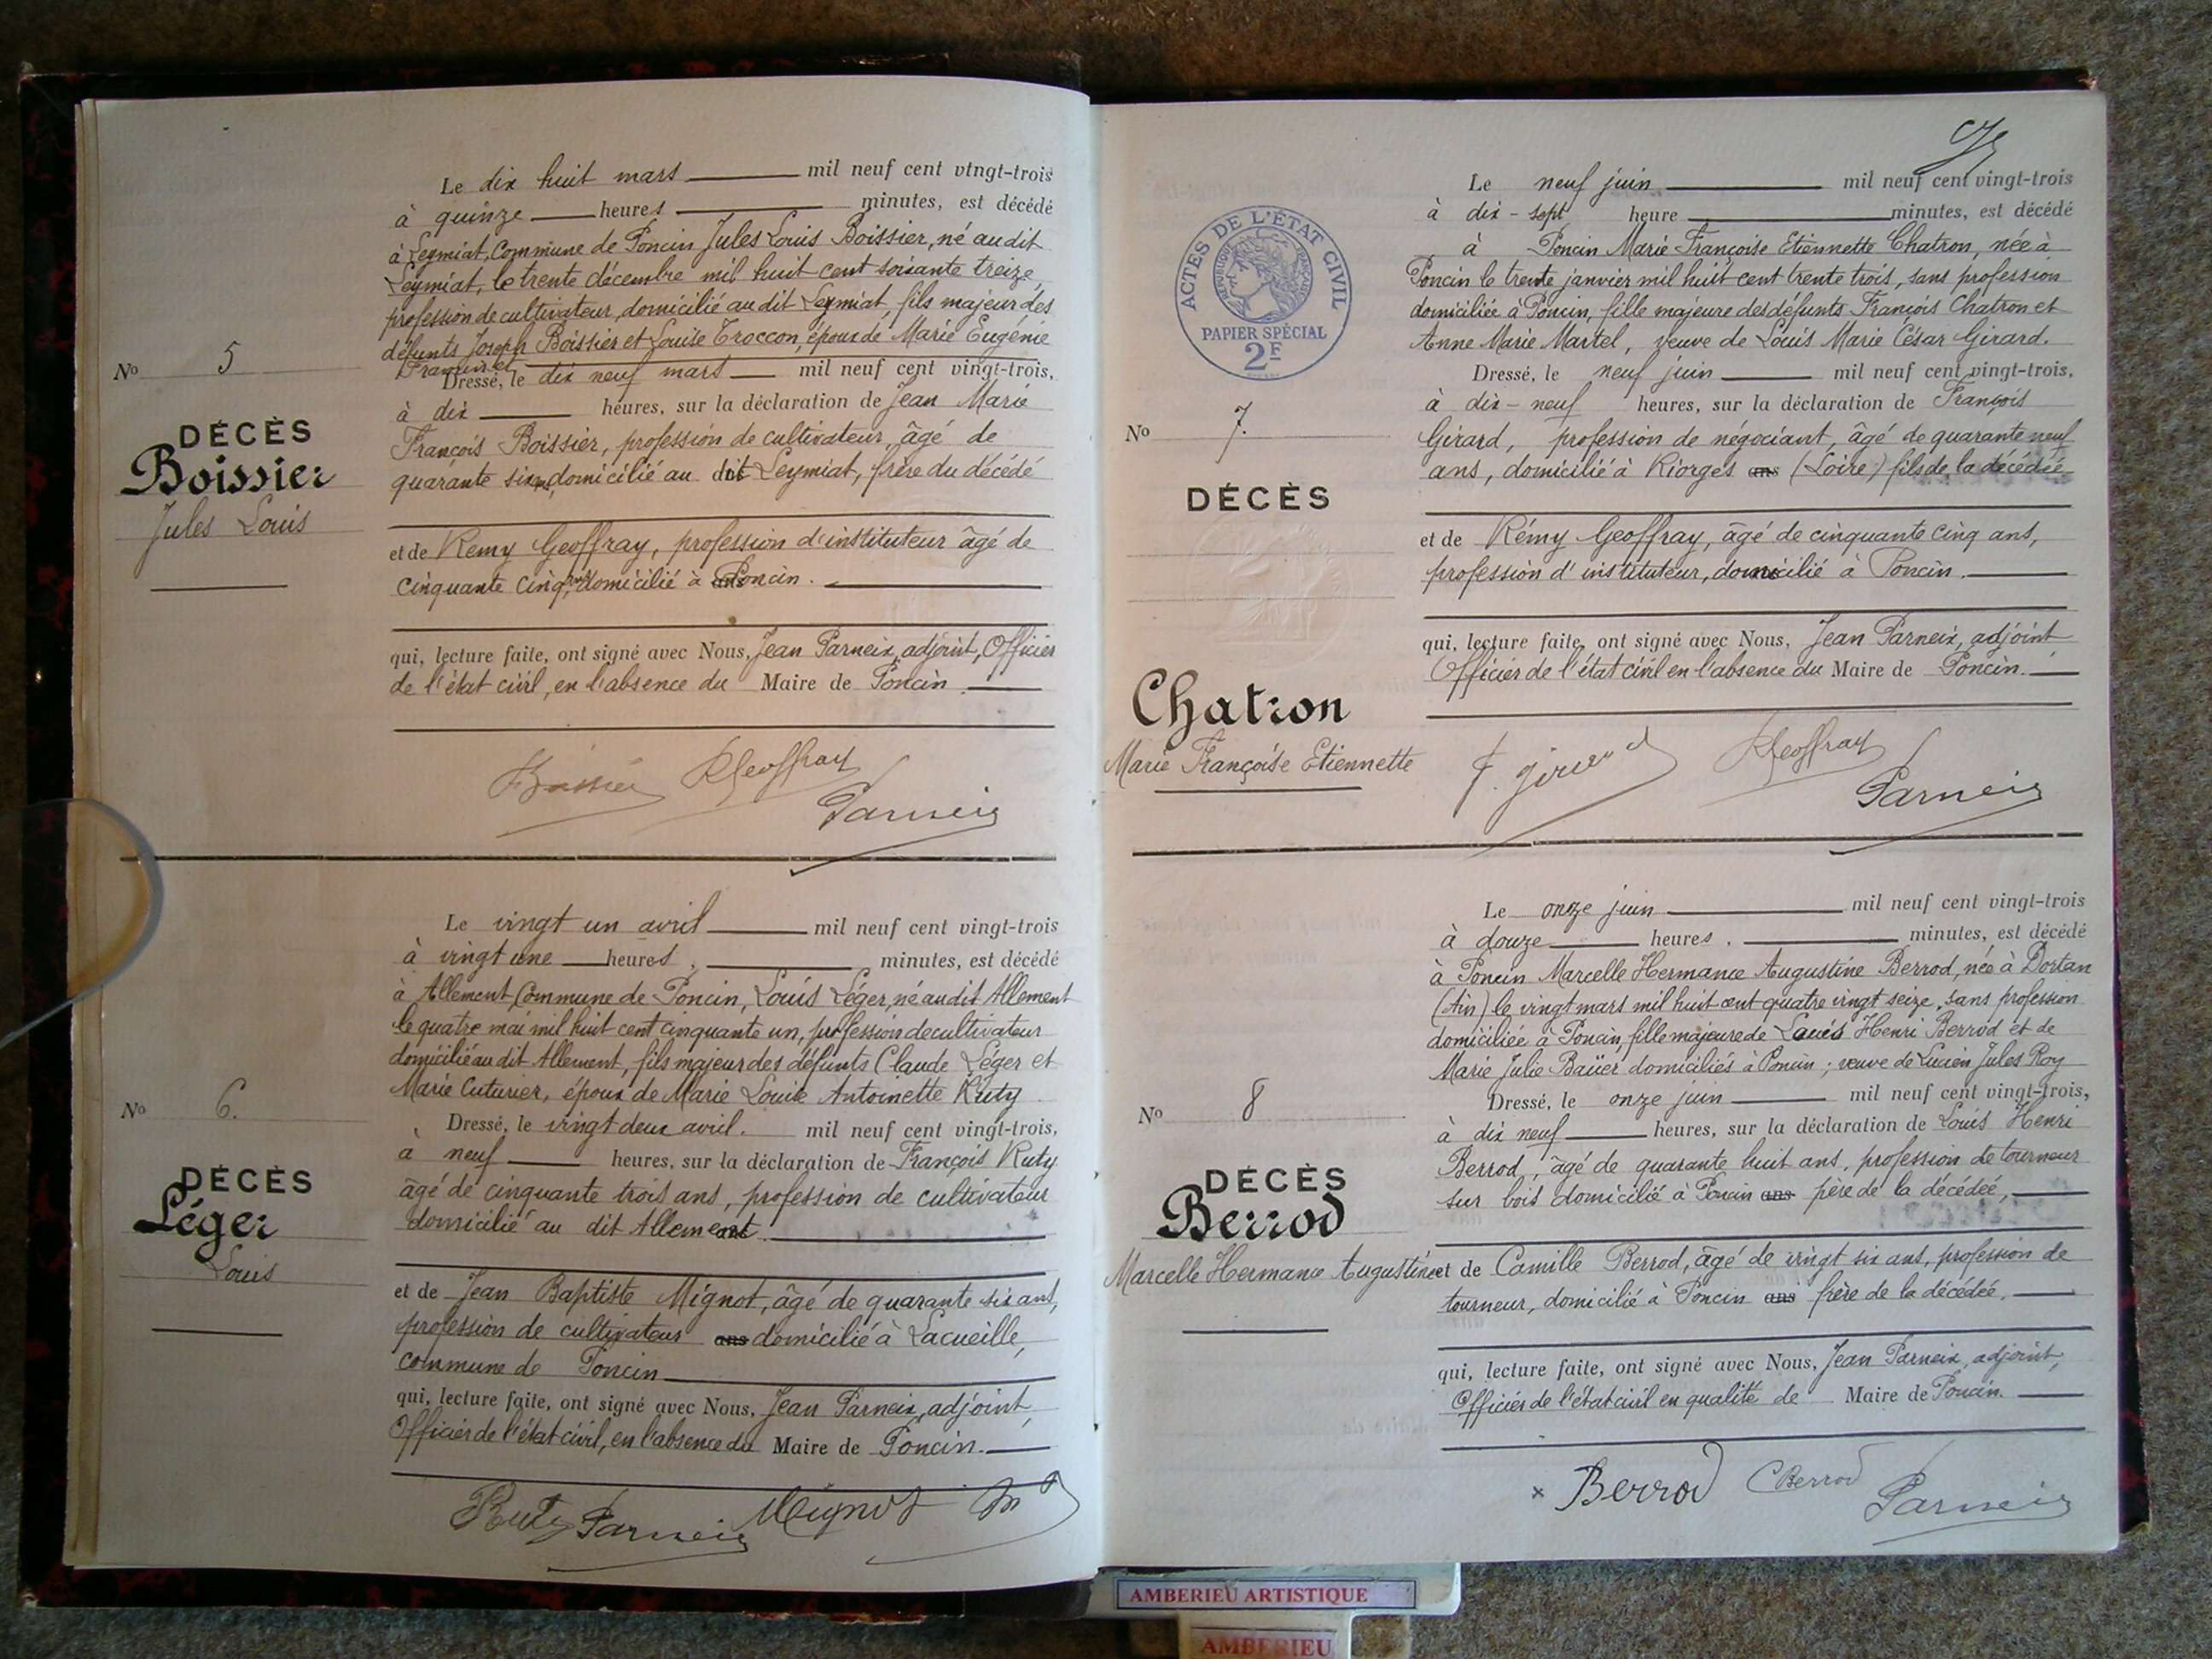 Le dix huit mars mil neuf cent vingt-trois
à quinze heures minutes, est décédé
à Leymiat, Commune de Poncin Jules Louis Boissier, né au dit
Leymiat, le trente décembre mil huit cent soixante treize,
profession de cultivateur, domicilié au dit Leymiat, fils majeur des
défunts Joseph Boissier et Louise Troccon, époux de Marie Eugénie
Nº 5
Dressé, le dix neuf mars mil neuf cent vingt-trois,
à dix heures, sur la déclaration de Jean Marie
DÉCÈS
Boissier
Jules Louis
François Boissier, profession de cultivateur, âgé de
quarante six ans, domicilié au dit Leymiat, frère du décédé
et de Remy Geoffray, profession d'instituteur âgé de
cinquante cinq ans, domicilié à ans Poncin.
qui, lecture faite, ont signé avec Nous, Jean Parneix, adjoint, Officier
de l'état civil, en l'absence du Maire de Poncin.
Boissier RGeoffray
Parneix
Le vingt un avril mil neuf cent vingt-trois
à vingt une heures, minutes, est décédé
à Allement, Commune de Poncin, Louis Léger, né au dit Allement
le quatre mai mil huit cent cinquante un, profession de cultivateur
domicilié au dit Allement, fils majeur des défunts Claude Léger et
Marie Cuturier, époux de Marie Louise Antoinette Ruty
Nº 6.
Dressé, le vingt deux avril. mil neuf cent vingt-trois,
à neuf heures, sur la déclaration de François Ruty
DÉCÈS
Léger
Louis
âgé de cinquante trois ans, profession de cultivateur
domicilié au dit Allement.
et de Jean Baptiste Mignot, âgé de quarante six ans,
profession de cultivateur ans domicilié à Lacueille,
commune de Poncin
qui, lecture faite, ont signé avec Nous, Jean Parneix, adjoint,
Officier de l'état civil, en l'absence du Maire de Poncin.
Ruty Parneix Mignot
ACTES DE L'ÉTAT CIVIL
RÉPUBLIQUE FRANÇAISE
PAPIER SPÉCIAL
2F
Le neuf juin mil neuf cent vingt-trois
à dix-sept heure minutes, est décédé
à Poncin Marie Françoise Etiennette Chatron, née à
Poncin le trente janvier mil huit cent trente trois, sans profession
domiciliée à Poncin, fille majeure des défunts François Chatron et
Anne Marie Martel, veuve de Louis Marie César Girard.
Nº 7.
Dressé, le neuf juin mil neuf cent vingt-trois,
à dix-neuf heures, sur la déclaration de François
Girard, profession de négociant, âgé de quarante neuf
ans, domicilié à Riorges ans (Loire) fils de la décédée
DÉCÈS
Chatron
Marie Françoise Etiennette
et de Rémy Geoffray, âgé de cinquante cinq ans,
profession d'instituteur, domicilié à Poncin.
qui, lecture faite, ont signé avec Nous, Jean Parneix, adjoint
Officier de l'état civil en l'absence du Maire de Poncin.
F. Girard RGeoffray
Parneix
Le onze juin mil neuf cent vingt-trois
à douze heures, minutes, est décédé
à Poncin Marcelle Hermance Augustine Berrod, née à Dortan
(Ain) le vingt mars mil huit cent quatre vingt seize, sans profession
domiciliée à Poncin, fille majeure de Louis Henri Berrod et de
Marie Julie Baüer domiciliés à Poncin; veuve de Lucien Jules Roy
Nº 8
Dressé, le onze juin mil neuf cent vingt-trois,
à dix neuf heures, sur la déclaration de Louis Henri
Berrod, âgé de quarante huit ans, profession de tourneur
sur bois domicilié à Poncin ans père de la décédée,
DÉCÈS
Berrod
Marcelle Hermance Augustine
et de Camille Berrod, âgé de vingt six ans, profession de
tourneur, domicilié à Poncin ans frère de la décédée.
qui, lecture faite, ont signé avec Nous, Jean Parneix, adjoint,
Officier de l'état civil en qualité de Maire de Poncin.
x Berrod CBerrod Parneix
AMBERIEU ARTISTIQUE
AMBERIEU